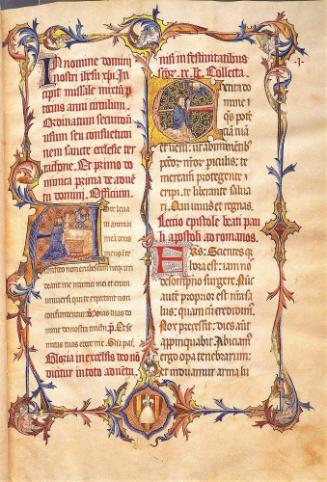 In nomine domini
nostri ihesu xpi. In
cipit missale mixtu p
totius anni circulum.
Ordinatum secundu
usum seu consuetudi
nem sancte ecclesie ter
rachone. Et primo do
minica prima de adue
tu domini. Officium.
Ad te leua
ui animam
mea deus
meus in te
confido non erubescam neqz irri
deant me inimici mei et enim
uniuersi qui te expectant non
confundentur. Vias tuas do
mine demonstra michi. Et se
mitas tuas edoce me. Gla pat.
Gloria in excelsis deo no
dicitur in toto aduetu.
nisi in festiuitatibus
scor. ix. lc. Collecta.
Excita do
mine qs
potecia tua
et ueni: ut ab iminentibz
pccor nror piculis: te
mereamur protegente
eripi, te liberante salua
ri. Qui uiuis et regnas.
Lectio epistole beati pau
li apostoli ad romanos.
Frs: Scientes qa
hora est: iam nos
de sompno surgere. Nuc
aute propior est nra sa
lus: quam cu credidimus.
Nox precessit: dies aut
appinquabit. Abiciam9
ergo opa tenebrarum:
et induamur arma lu